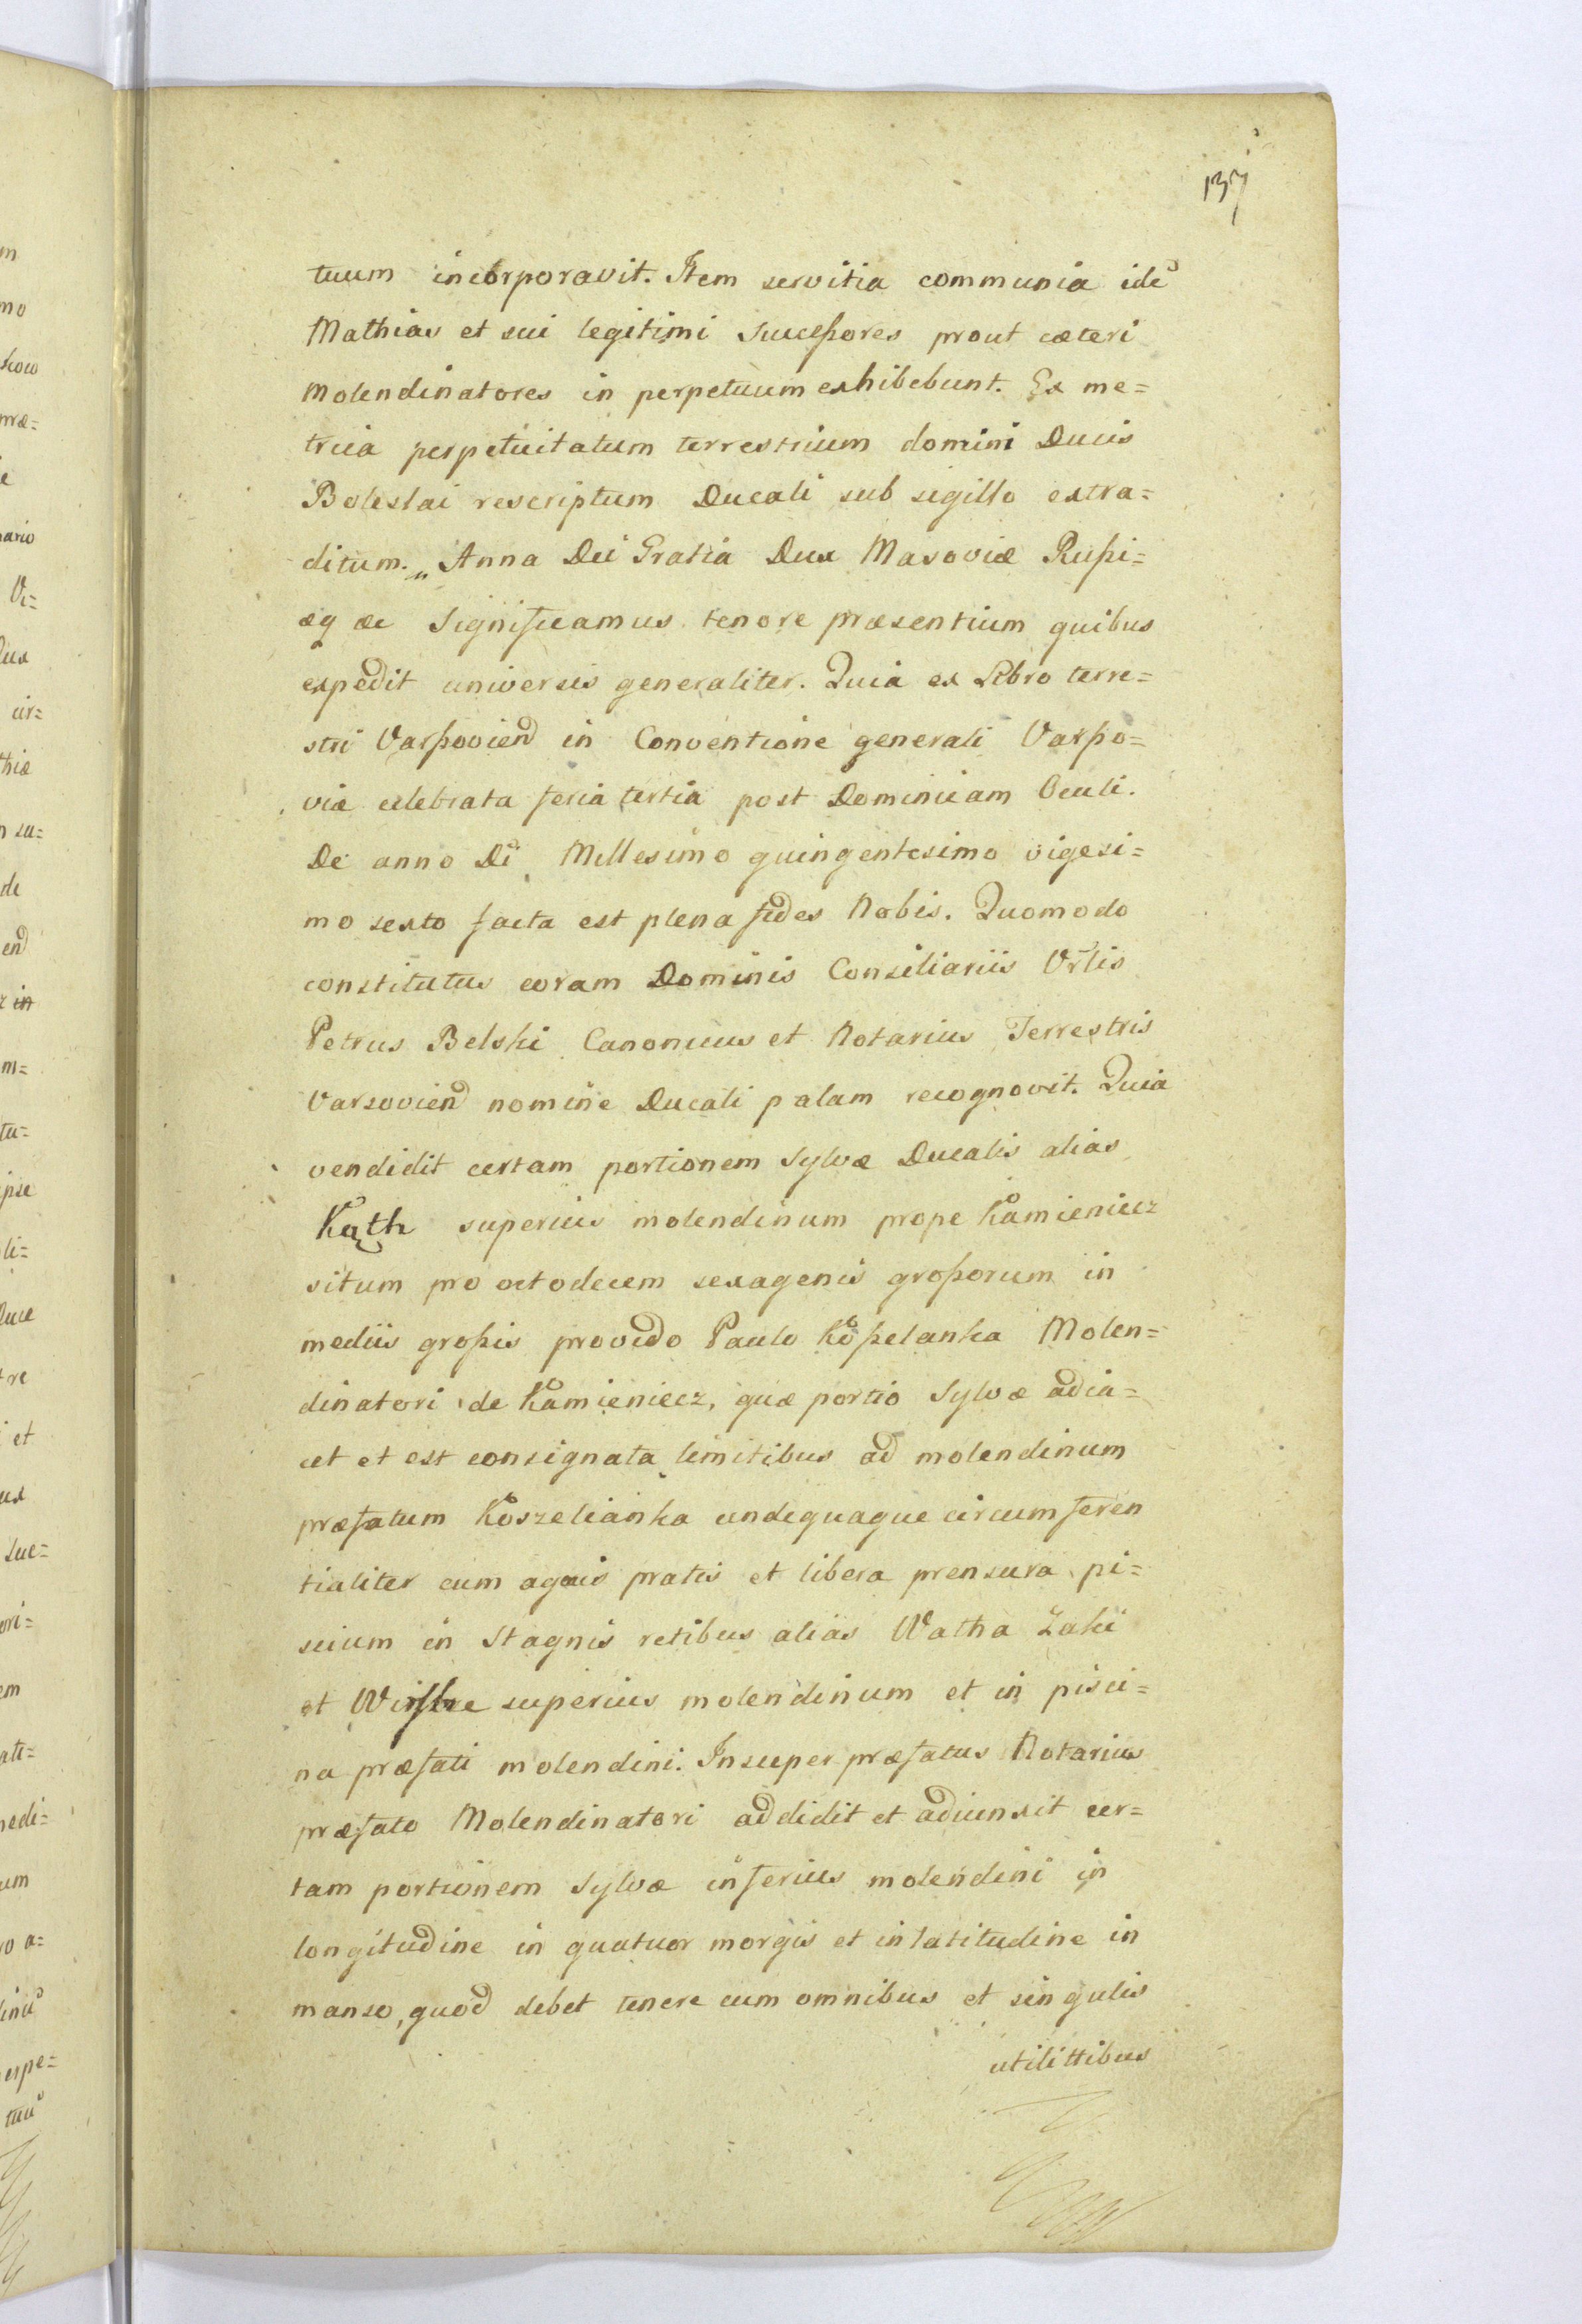 137
tuum incorporavit. Item servitia communia idē
Mathias et sui legitimi Sucessores prout cæteri
Molendinatores in perpetuum exhibebunt. Ex me=
trica perpetuitatum terrestrium domini Ducis
Boleslai rescriptum Ducali sub sigillo extra=
ditum. „Anna Dei Gratia Dux Masoviæ Russi=
æq æc Significamus tenore præsentium quibus
expedit universis generaliter. Quia ex Libro terre=
stri Varssoviend in Conventione generali Varsso=
viæ celebrata feria tertia post Dominicam Oculi.
De anno Dī Millesimo quingentesimo vigesi=
mo sexto facta est plena fides Nobis. Quomodo
constitutus coram Dominis Consiliariis Vrlis
Petrus Belski Canonicus et Notarius Terrestris
Varsoviend nomine Ducali palam recognovit. Quia
vendidit certam portionem Sylvæ Ducalis alias
Kąth superius molendinum prope Kamieniecz
situm pro octodecem sexagenis grossorum in
mediis grossis provido Paulo Kosselanka Molen=
dinatori de Kamieniecz, quæ portio Sylvæ adia=
cet et est consignata limitibus ad molendinum
præfatum Koszelianka undequaque circumferen
tialiter cum agris pratis et libera prensura pi=
scium in Stagnis retibus alias Watha Zaki
et superius molendinum et in pisci=
na præfati molendini. Insuper præfatus Notarius
præfato Molendinatori addidit et adiunxit cer=
tam portionem Sylvæ inferius molendini in
longitudine in quatuor morgis et in latitudine in
manso, quod debet tenere cum omnibus et singulis
utilittibus